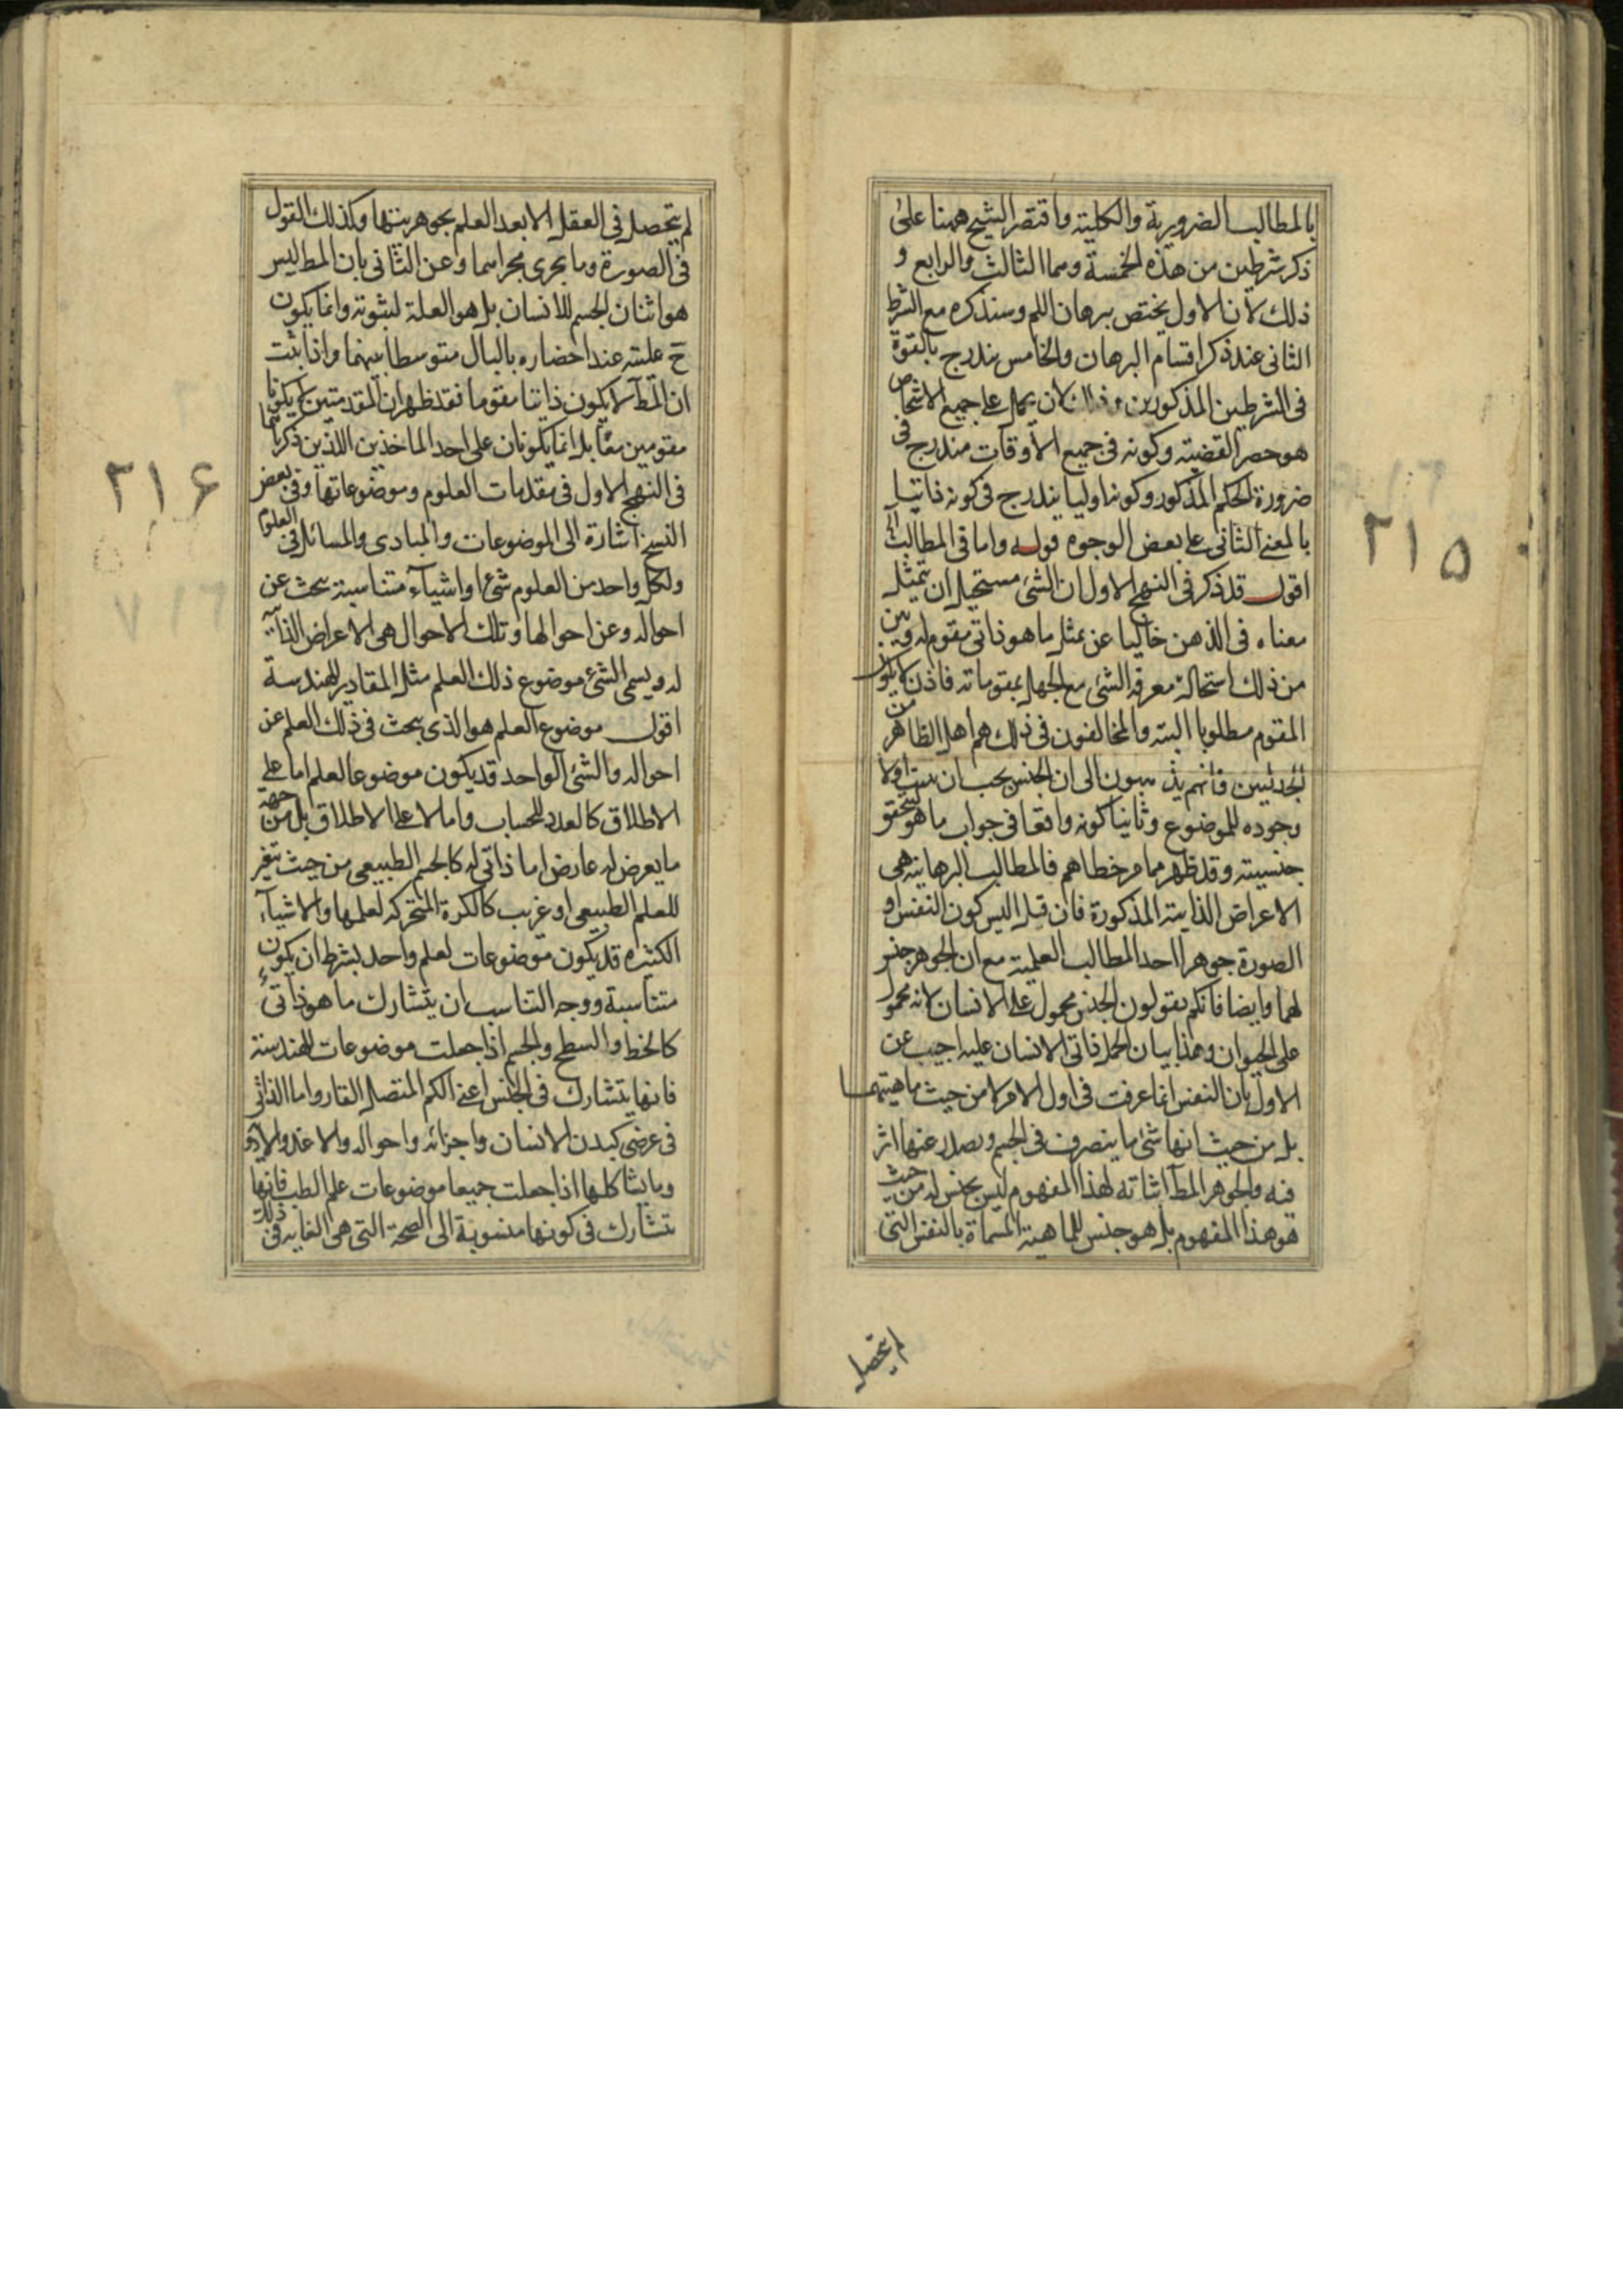 بالمطالب الضرورية والكلية واقتصر الشيخ ههنا على
ذكر شرطين من هذه الخمسة وهما الثالث والرابع و
ذلك لان الاول يختص ببرهان اللم وسنذكره مع الشرط
الثانى عند ذكر اقسام البرهان والخامس يندرج بالقوة
فى الشرطين المذكورين وذلك لان يحمل على جميع الاشخاص
هو حصر القضية وكونه فى جميع الاوقات مندرج فى
ضرورة الحكم المذكور وكونه اوليا يندرج فى كونه ذاتيا
بالمعنى الثانى على بعض الوجوه قوله واما فى المطالب
اقول قد ذكر فى النهج الاول ان الشئ مستحيل ان يتمثل
معناه فى الذهن خاليا عن تمثل ما هو ذاتى مقوم له وبين
من ذلك استحالة معرفة الشئ مع الجهل بمقوماته فاذن لا يكون
المقوم مطلوبا البتة والمخالفون فى ذلك هم اهل الظاهر من
الجدليين فانهم يذهبون الى ان الجنس يجب ان يثبت اولا
وجوده للموضوع وثانيا كونه واقعا فى جواب ما هو ليتحقق
جنسيته وقد ظهر مما مر خطاهم فالمطالب البرهانية هى
الاعراض الذاتية المذكورة فان قيل اليس كون النفس او
الصورة جوهرا احد المطالب العلمية مع ان الجوهر جنس
لهما وايضا فانكم تقولون الجنس محمول على الانسان لانه محمول
على الحيوان وهذا بيان لحمل ذاتى الانسان عليه اجيب عن
الاول بان النفس انما عرفت فى اول الامر لا من حيث ماهيتها
بل من حيث انها شئ ما يتصرف فى الجسم ويصدر عنها اثر
فيه والجوهر المط اثباته لهذا المفهوم ليس بجنس له من حيث
هو هذا المفهوم بل هو جنس للماهية المسماة بالنفس التى
لم يتحصل
٢١۵
لم يتحصل فى العقل الا بعد العلم بجوهريتها وكذلك القول
فى الصورة وما يجرى مجراهما وعن الثانى بان المط ليس
هو اثبات الجسم للانسان بل هو العلة لثبوته وانما يكون
ح عليته عند احضاره بالبال متوسطا بينهما واذا ثبت
ان المط لا يكون ذاتيا مقوما فقد ظهر ان المقدمتين لا يكونا
مقومين معا بل انما يكونان على احد الماخذين اللذين ذكرناهما
فى النهج الاول فى مقدمات العلوم وموضوعاتها وفى بعض
النسخ اشارة الى الموضوعات والمبادى والمسائل فى العلوم
ولكل واحد من العلوم شئ او اشياء متناسبة يبحث عن
احواله وعن احوالها وتلك الاحوال هى الاعراض الذاتية
له ويسمى الشئ موضوع ذلك العلم مثل المقادير للهندسة
اقول موضوع العلم هو الذى يبحث فى ذلك العلم عن
احواله والشئ الواحد قد يكون موضوعا لعلم اما على
الاطلاق كالعدد للحساب واما لا على الاطلاق بل من جهة
ما يعرض له عارض اما ذاتى له كالجسم الطبيعى من حيث يتغير
للعلم الطبيعى او غريب كالكرة المتحركه لعلمها والاشياء
الكثيره قد يكون موضوعات لعلم واحد بشرط ان يكون
متناسبة ووجه التناسب ان يتشارك ما هو ذاتى
كالخط والسطح والجسم اذا جعلت موضوعات للهندسة
فانها يتشارك فى الجنس اعنى الكم المتصل القار واما
فى عرضى كبدن الانسان واجزائه واحواله والاغذية والادوية
وما يشاكلها اذا جعلت جميعا موضوعات علم الطب فانها
تتشارك فى كونها منسوبة الى الصحة التى هى الغاية فى ذلك
٢١۶